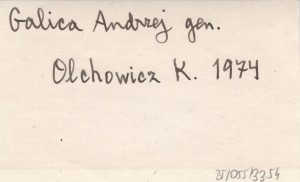 Galica Andrzej gen.
Olchowicz K. 1974